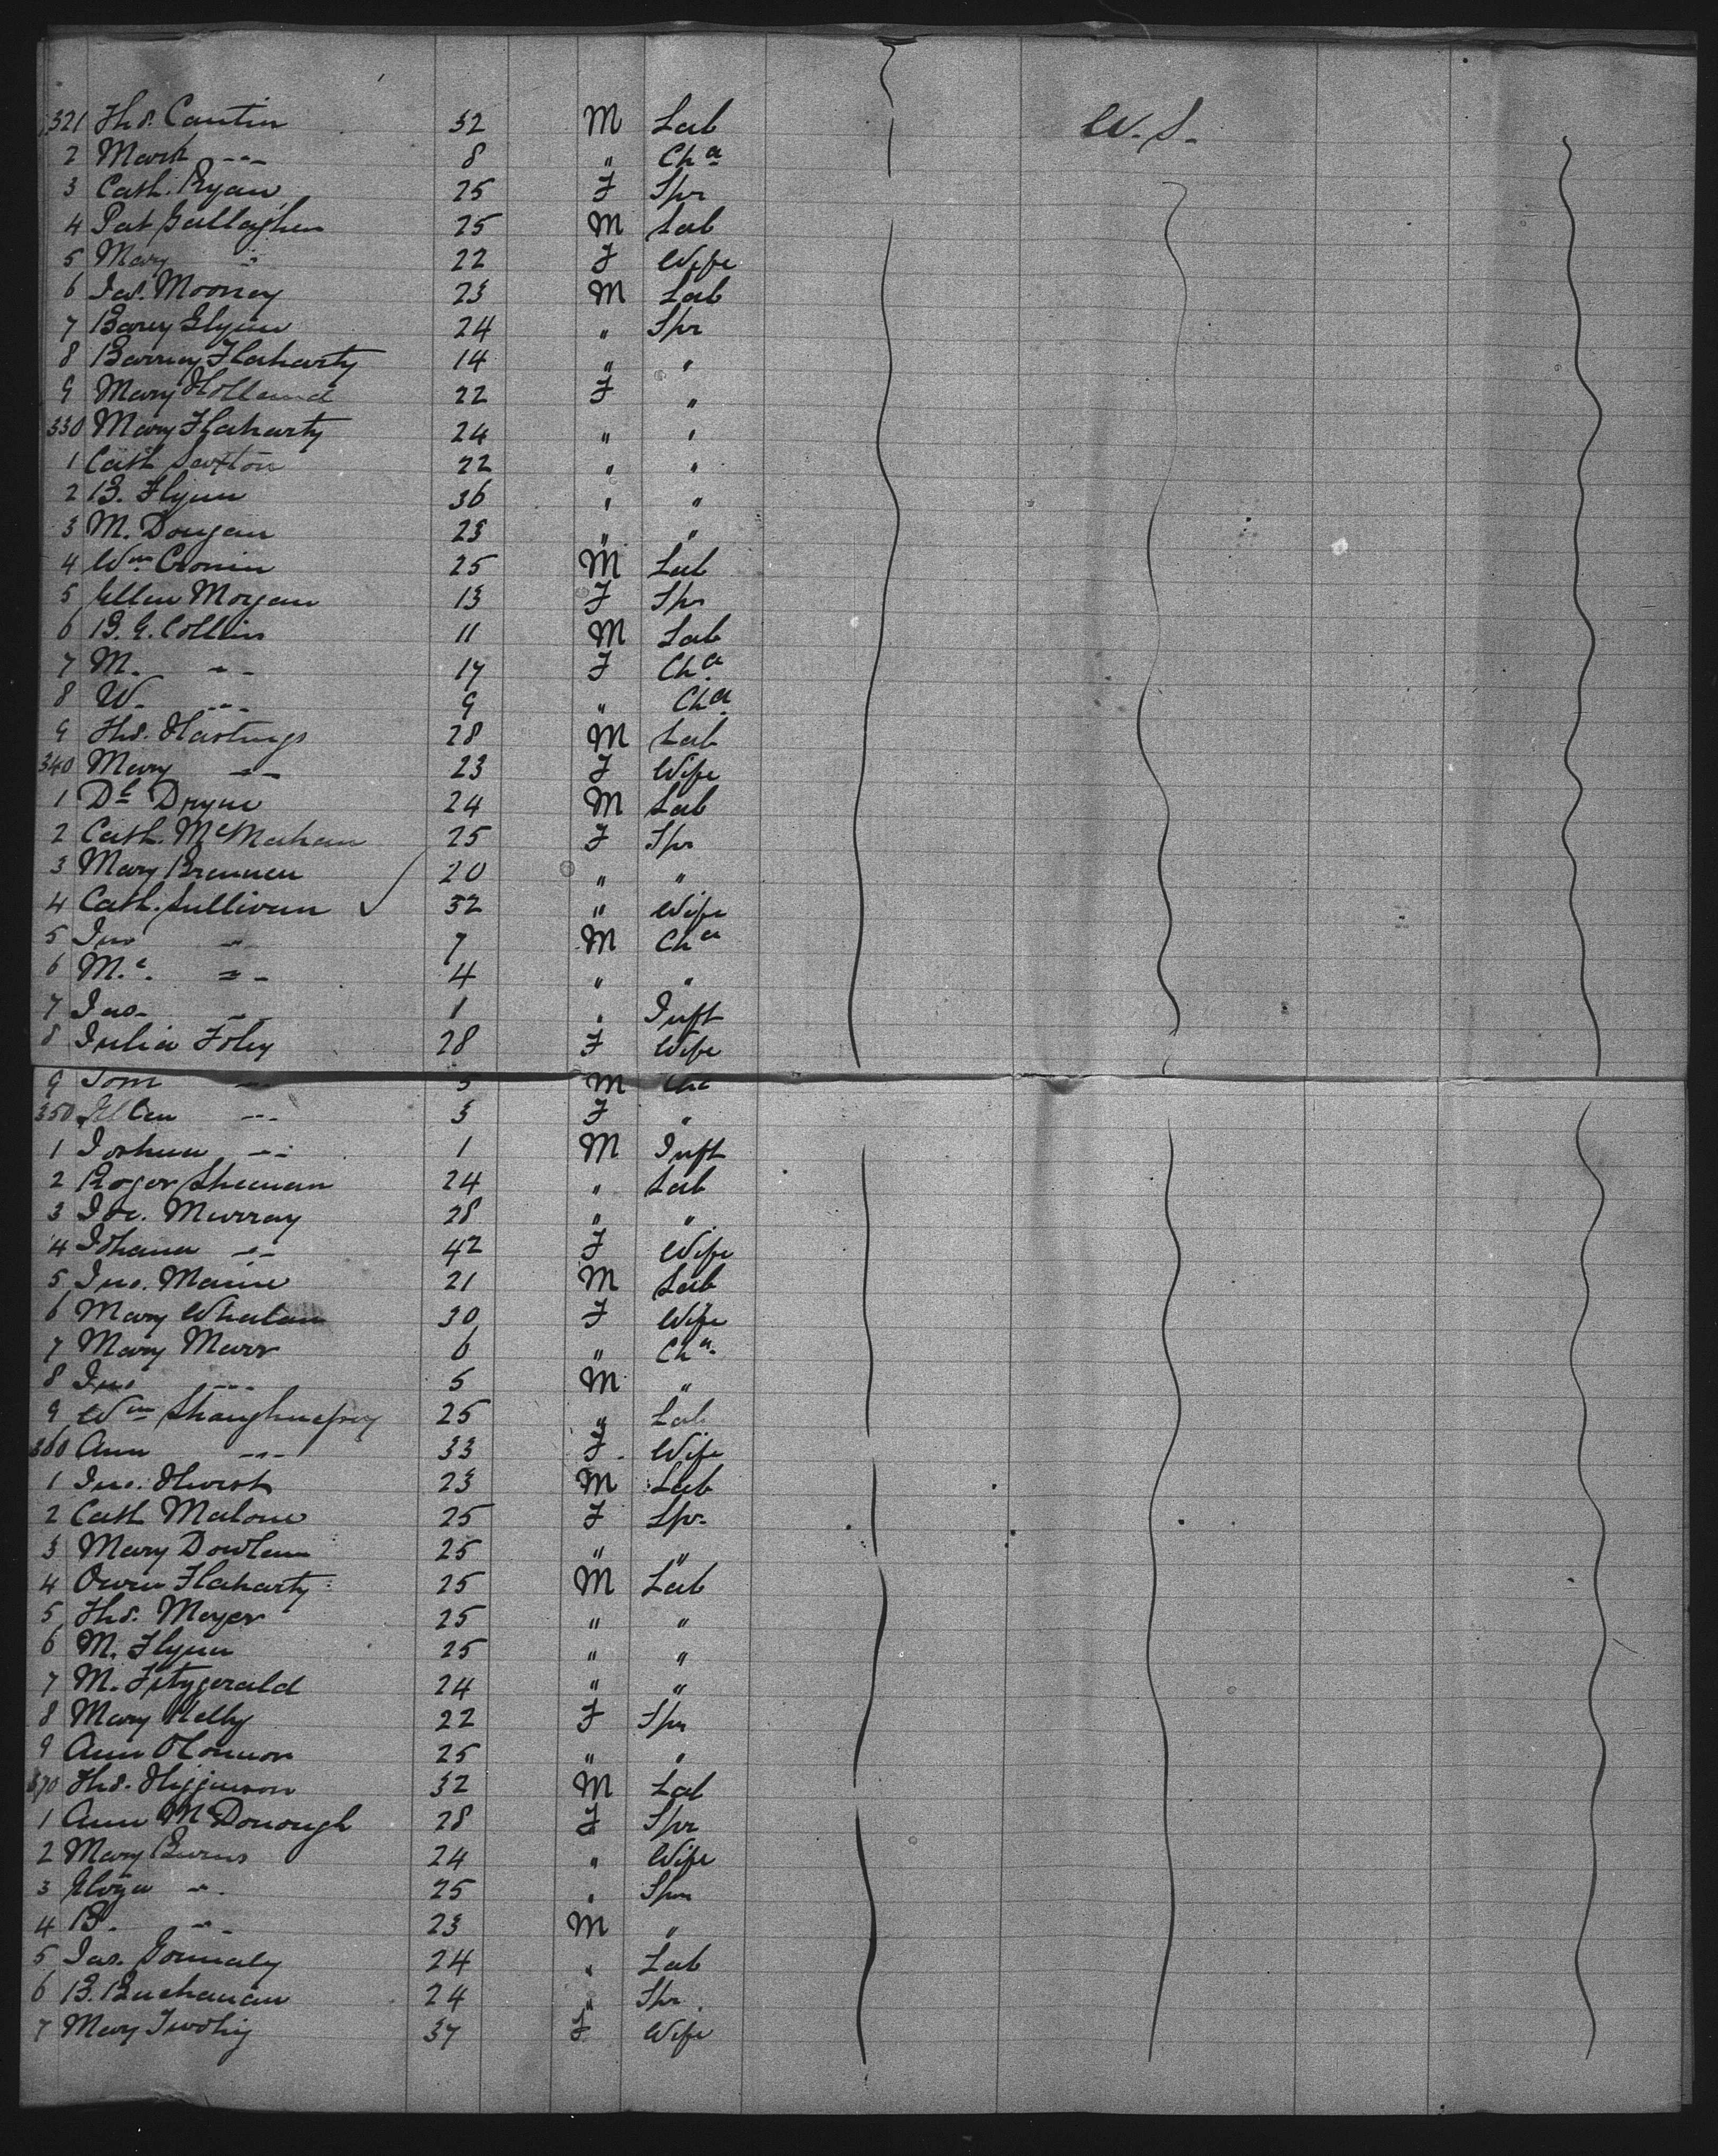 321 Thos. Cantin 32 M Lab U.S.
2 Mark " 8 " Cha
3 Cath. Ryan 25 F Spr
4 Pat Gallagher 25 M Lab
5 Mary " 22 F Wife
6 Jas. Mooney 23 M Lab
7 Barny Glynn 24 " Spr
8 Barney Flaharty 14 " "
9 Mary Holland 22 F "
330 Mary Flaharty 24 " "
1 Cath Saxton 22 " "
2 B. Flynn 36 " "
3 M. Dougan 23 " "
4 Wm Cronin 25 M Lab
5 Ellen Morgan 13 F Spr
6 B. G. Collins 11 M Lab
7 M. " 17 F Cha
8 W. " 9 " Cha
9 Thos. Hastings 28 M Lab
340 Mary " 23 F Wife
1 Dl Dryne 24 M Lab
2 Cath. McMahan 25 F Spr
3 Mary Brennen 20 " "
4 Cath. Sullivan ✓ 32 " Wife
5 Jno " 7 M Cha
6 Mc. " 4 " "
7 Jas. " 1 " Inft
8 Julia Foley 28 F Wife
9 Tom " 5 M Cha
350 Ellen " 3 F "
1 Joshua " 1 M Inft
2 Roger Sheenan 24 " Lab
3 Joe. Murray 28 " "
4 Johana " 42 F Wife
5 Jno. Maine 21 M Lab
6 Mary Whalan 30 F Wife
7 Mary Marr 6 " Cha
8 Jno " 5 M "
9 Wm Shaughnessy 25 " Lab
360 Ann " 33 F Wife
1 Jno. Hurst 23 M Lab
2 Cath Malone 25 F Spr
3 Mary Dowlan 25 " "
4 Owen Flaharty 25 M Lab
5 Thos. Moyer 25 " "
6 M. Flynn 25 " "
7 M. Fitzgerald 24 " "
8 Mary Kelly 22 F Spr
9 Ann OConnor 25 " "
370 Thos. Higginson 32 M Lab
1 Ann McDonough 28 F Spr
2 Mary Burns 24 " Wife
3 Eliza " 25 " Spr
4 B. " 23 M "
5 Jas. Gormaly 24 " Lab
6 B. Buchanan 24 " Spr
7 Mary Twohig 37 F Wife